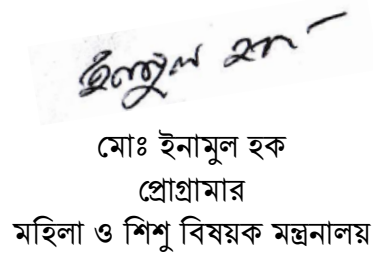 ইনামুল হক
মোঃ ইনামুল হক
প্রোগ্রামার
মহিলা ও শিশু বিষয়ক মন্ত্রনালয়